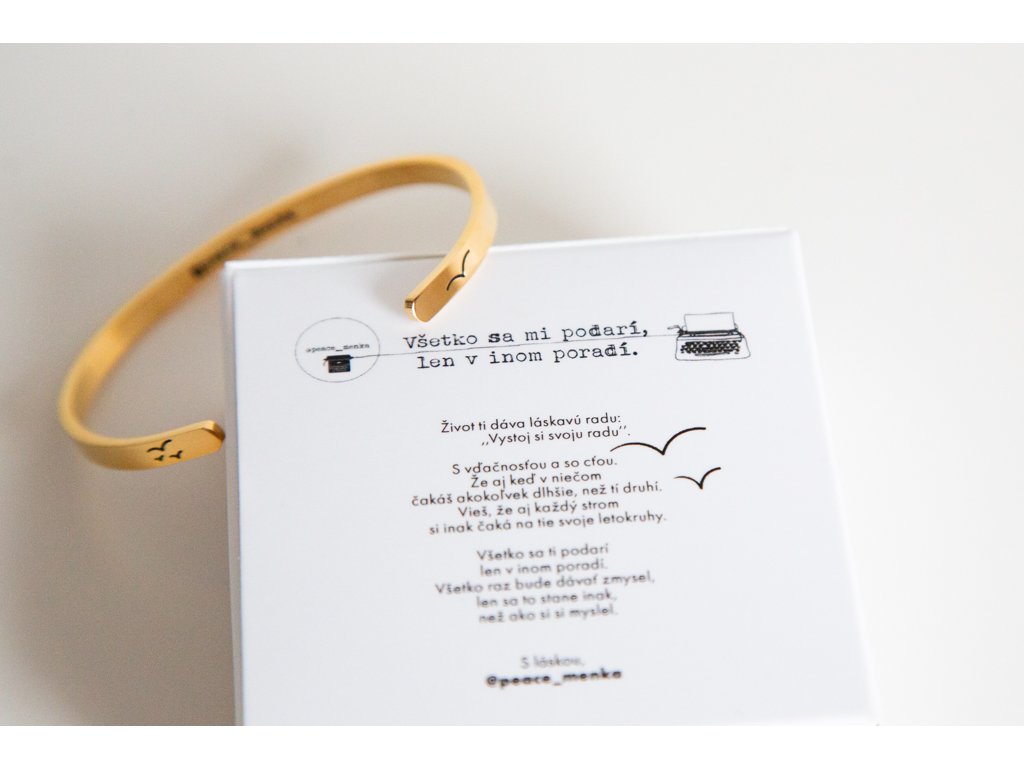 @peace_menka
Všetko sa mi podarí,
len v inom poradí.
Život ti dáva láskavú radu:
,,Vystoj si svoju radu''.
S vďačnosťou a so cťou.
Že aj keď v niečom
čakáš akokoľvek dlhšie, než tí druhí.
Vieš, že aj každý strom
si inak čaká na tie svoje letokruhy.
Všetko sa ti podarí
len v inom poradí.
Všetko raz bude dávať zmysel,
len sa to stane inak,
než ako si si myslel.
S láskou,
@peace_menka